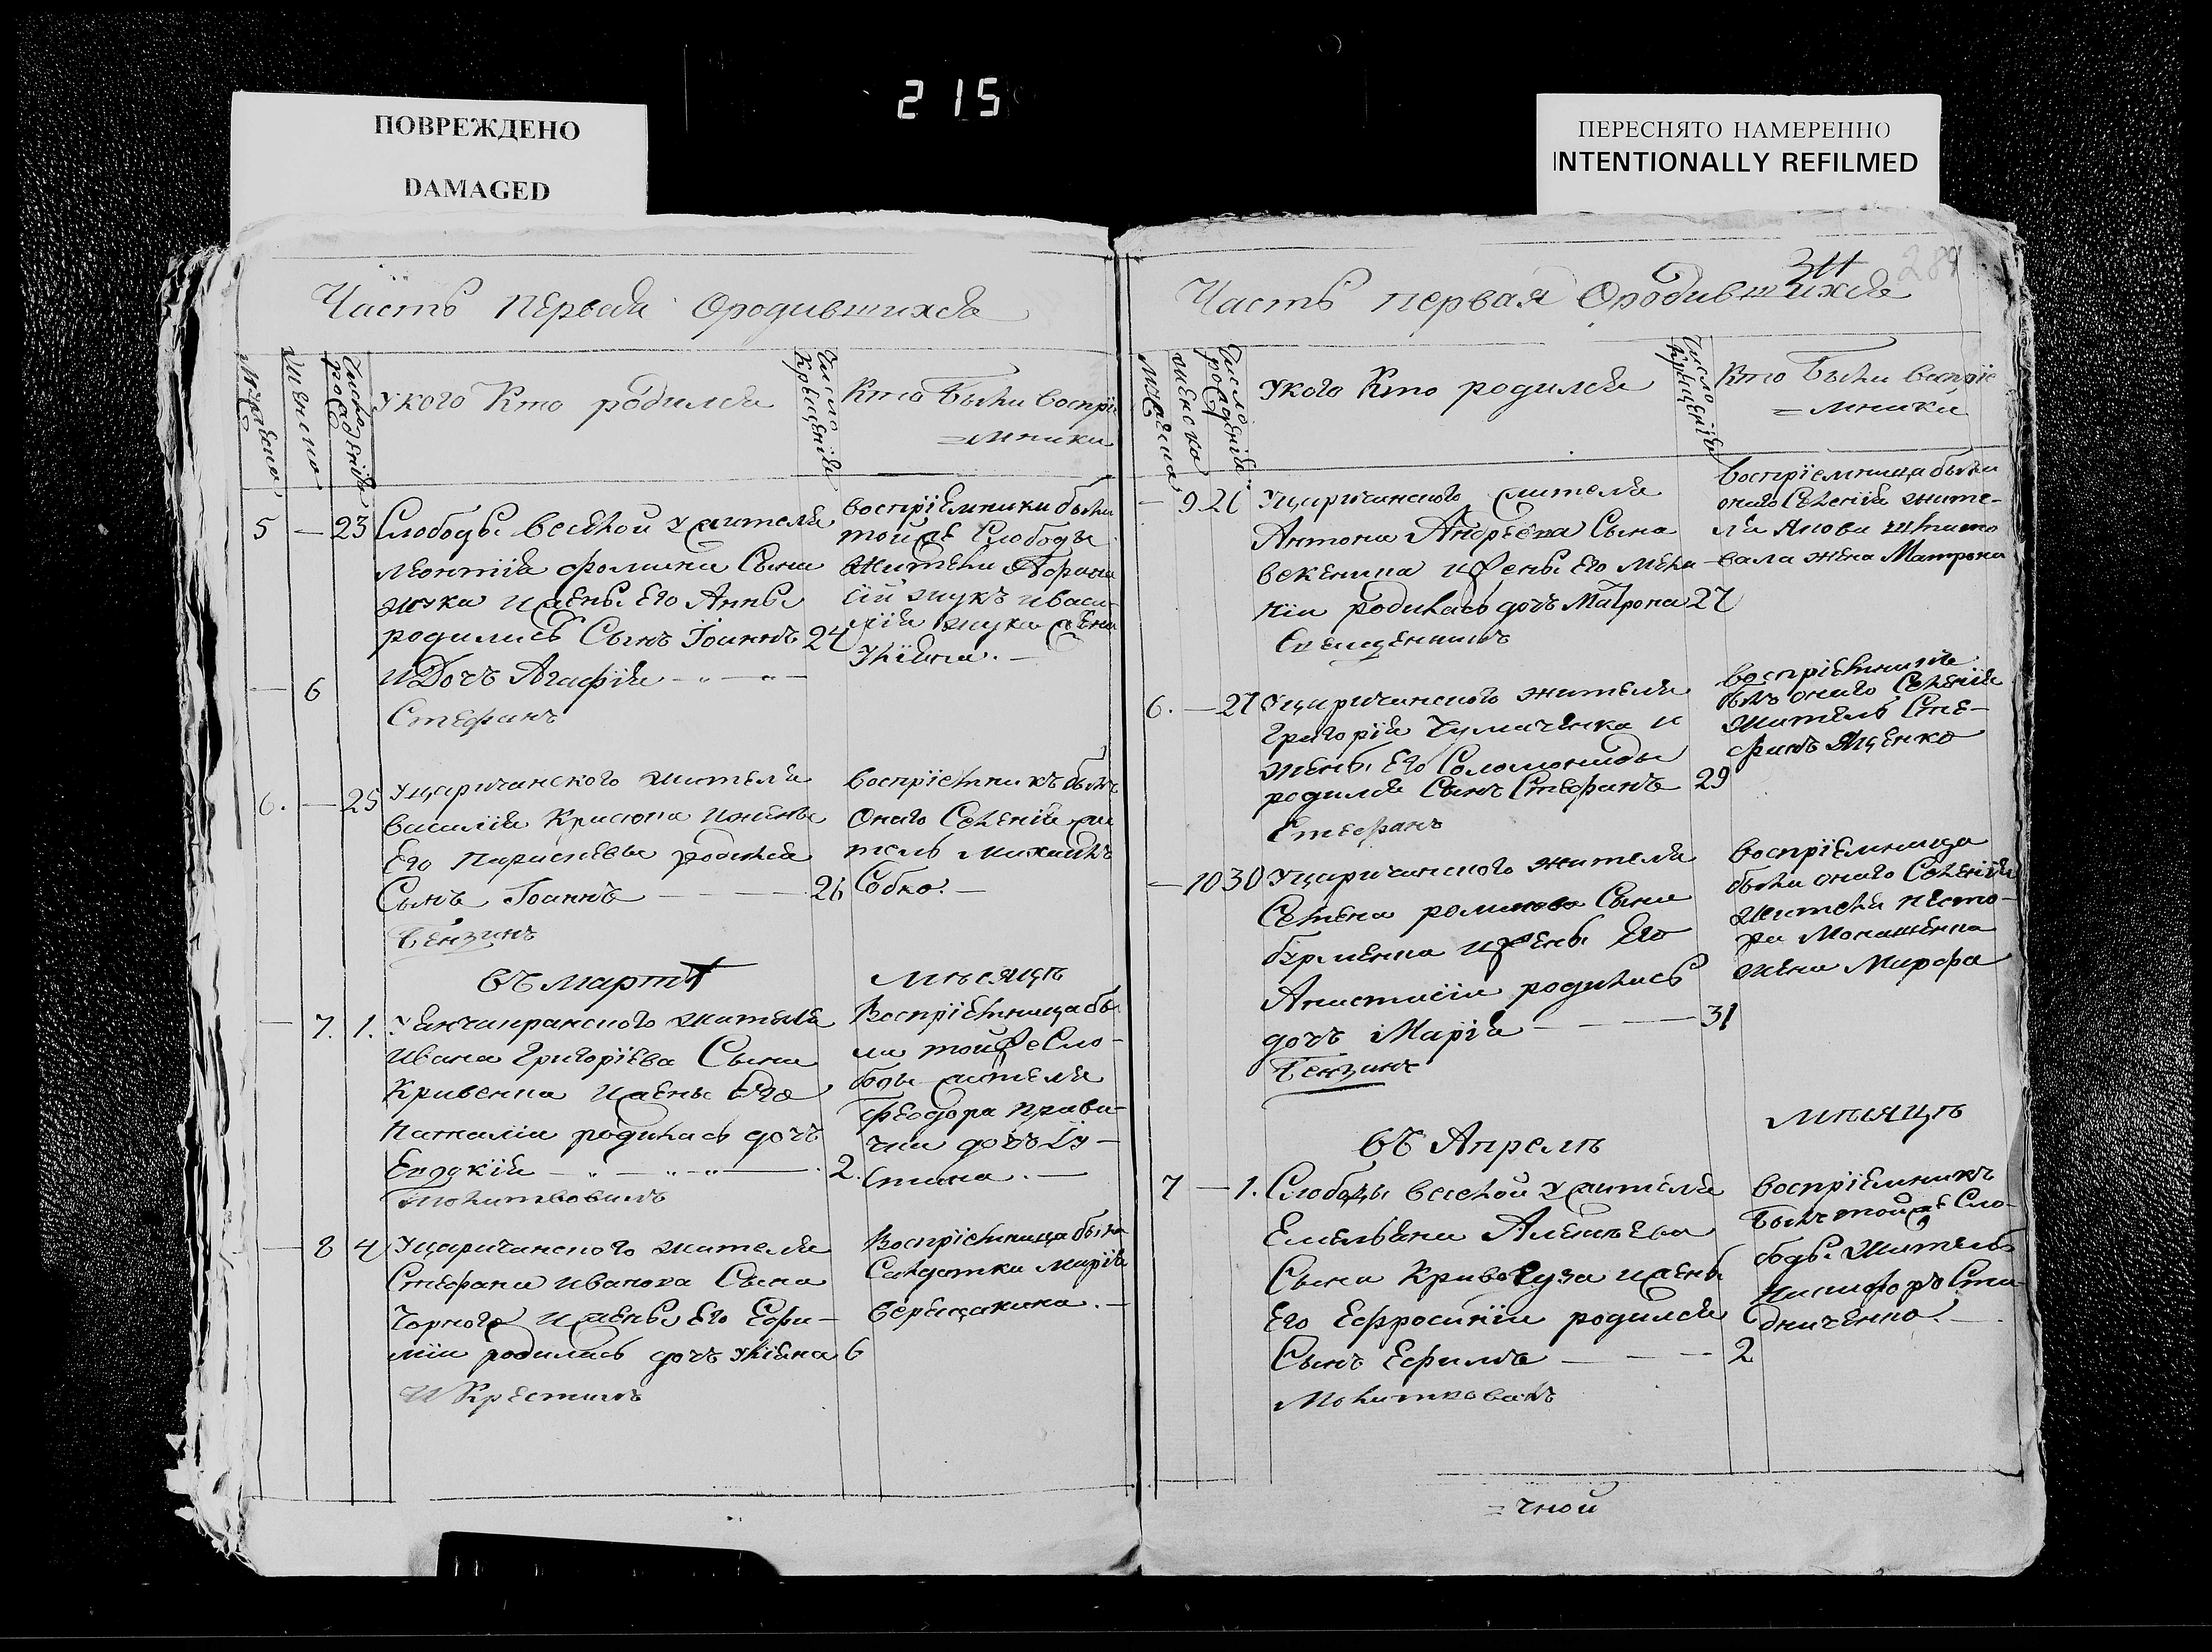 215
ПОВРЕЖДЕНО
DAMAGED
ПЕРЕСНЯТО НАМЕРЕННО
INTENTIONALLY REFILMED
Часть первая ородившихся
Мужеска
Женска
Число рожденія
Укого Кто родился
Число Крыщенія
Кто были воспрі
=мники
5 — 23 Слободы Жителя
Леонтія Фомина Сына
Жука иженѣ Его Анны
родились Сынъ Іоаннъ 24
— 6 ИДочь Агафія
Стефанъ
воспріемники были
тойже Слободы
Жители
сій жукъ иваси-
лія жука жена
Уліяна. —
6. — 25 Уцаричанского жителя
Василія ижены
Его родился
Сынъ Іоаннъ — 26
воспріемникъ былъ
Оного Селенія жи
тель Михаилъ
Собко. —
Въ мартѣ мѣсяцѣ
— 7. 1. жителя
Ивана Григоріева Сына
Кривенка ижены Его
Наталіи родилась дочь
Евдокія — 2.
Воспріемница бы
ла тойжеСло-
боды жителя
Феодора
дочь Іу-
стина. —
— 8 4 Уцаричанского жителя
Стефана Иванова Сына
Чорного иженѣ Его Ефи-
міи родилась дочь Уліяна 6
И Крестилъ
Воспріемница была
Салдатка Марія
34 289
Часть первая Ородившихся
Мужеска
женска
Число рожденія
Укого Кто родился
Число Крищенія
Кто были воспріе
=мники
— 9 26 Уцаричанского жителя
Антона Андреева Сына
ижены Его Мела-
ніи родилась дочь Матрона 27
воспріемница была
оного Селенія жите-
ля
вала жена Матрона
6. — 27 Уцаричанского жителя
Григорія Чумаченка и
жены Его Соломониды
родился Сынъ Стефанъ 29
Стефанъ
воспріемникъ
былъ оного Селенія
житель Сте-
фанъ Яценко
— 10 30 Уцаричанского жителя
Семена романова Сына
ижены Его
Анастасіи родилась
дочь Марія — 31
воспріемница
была оного Селенія
жителя Несто-
ра Монашенка
жена Марфа
Въ Апрелѣ мѣсяцѣ
7 — 1. Слободы жителя
Емельяна Алексѣева
Сына ижены
Его Ефросиніи родился
Сынъ Ефимъ — 2
Молитвовалъ
воспріемникъ
былъ тойже Сло-
боды житель
Никифоръ Ста-
дниченко. —
=чной